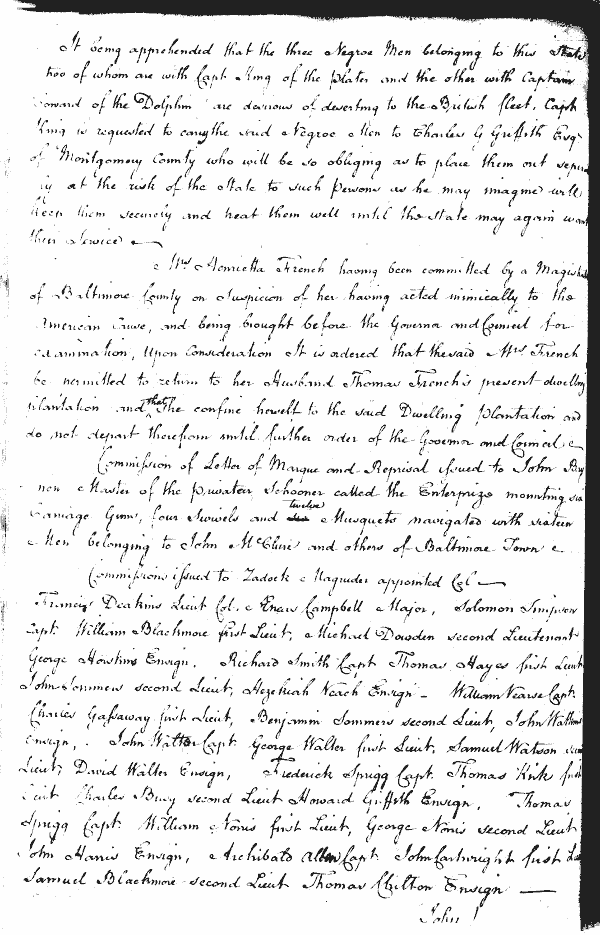 It being apprehended that the three Negroe Men belonging to this State
two of whom are with Capt King of the Plater and the other with Captain
of the Dolphin are desirous of deserting to the British fleet, Capt
King is requested to carry the said Negroe Men to Charles G Griffith Esqr
of Montgomery County who will be so obliging as to place them out
at the risk of the State to such Persons as he may imagine will
keep them securely and treat them well until the State may again want
their Service
Mrs Henrietta French having been committed by a
of Baltimore County on Suspicion of her having acted inimically to the
American Cause, and being brought before the Governor and Council for
examination, Upon Consideration It is ordered that the said Mrs French
be permitted to return to her Husband Thomas French's present dwelling
plantation and that She confine herself to the said Dwelling Plantation and
do not depart therefrom until further order of the Governor and Council
Commission of Letter of Marque and Reprisal issued to John
Master of the Privateer Schooner called the Enterprize mounting six
Carriage Guns, four Swivels and twelve Musquets navigated with sixteen
Men belonging to John McClure and others of Baltimore Town
Commissions issued to Zadock Magruder appointed Col
Francis Deakins Lieut Col. Eneas Campbell Major, Solomon Simpson
Capt. William Blackmore first Lieut, Michael Dowden second Lieutenant
George Hoskins Ensign, Richard Smith Capt Thomas Hayes first Lieut
John Sommers second Lieut, Hezekiah Veach Ensign - William Vearse Capt.
Charles Gassaway first Lieut, Benjamin Sommers second Lieut, John
Ensign, John Walter Capt. George Walter first Lieut, Samuel Watson
Lieut, David Walter Ensign, Frederick Sprigg Capt. Thomas Kirk first
Lieut Charles Busy second Lieut Howard Griffith Ensign, Thomas
Sprigg Capt. William Norris first Lieut, George Norris second Lieut
John Harris Ensign, Archibald Allen Capt. John Cartwright first
Samuel Blackmore second Lieut Thomas Chilton Ensign
John